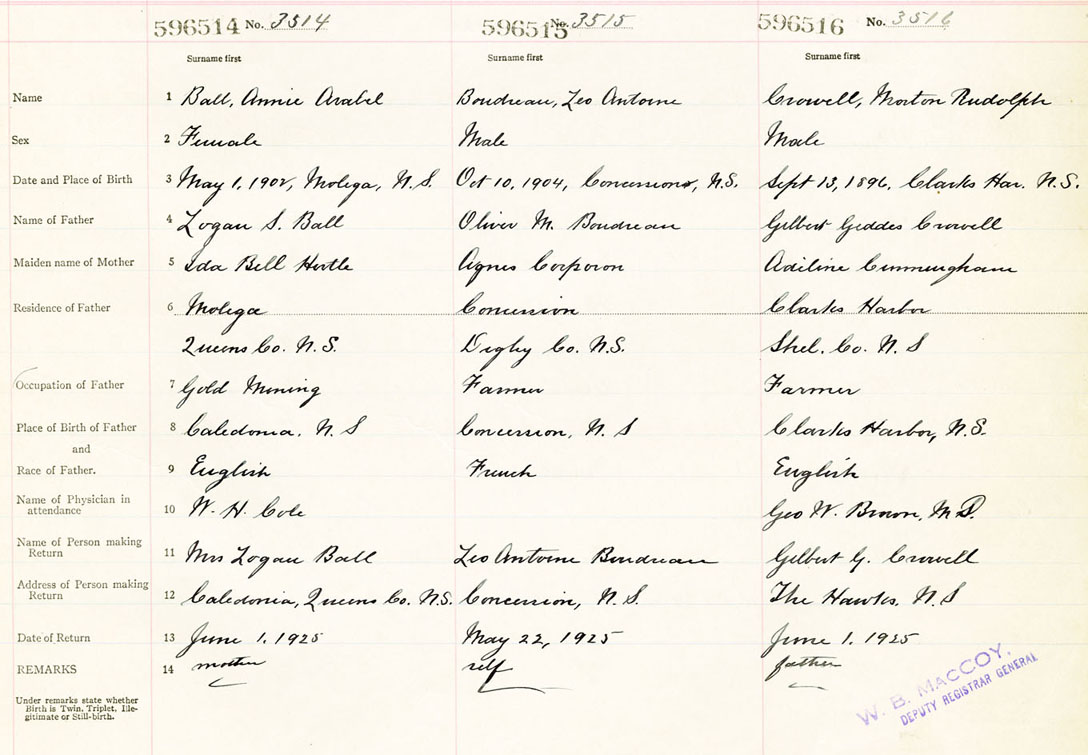 596514 No. 3514 596515 No. 3515 596516 No. 3516
Surname first Surname first Surname first
Name 1 Ball, Annie Arabel Boudreau, Leo Antoine Crowell, Morton Rudolph
Sex 2 Female Male Male
Date and Place of Birth 3 May 1, 1902, Molega, N.S. Oct 10, 1904, Concession, N.S. Sept 13, 1896, Clarks Har. N.S.
Name of Father 4 Logan S. Ball Oliver M. Boudreau Gilbert Geddes Crowell
Maiden name of Mother 5 Ida Bell Hirtle Agnes Corporon Adiline Cunningham
Residence of Father 6 Molega Concession Clarks Harbor
Queens Co. N.S. Digby Co. N.S. Shel. Co. N.S
Occupation of Father 7 Gold Mining Farmer Farmer
Place of Birth of Father 8 Caledonia, N.S Concession, N.S Clarks Harbor, N.S.
and
Race of Father. 9 English French English
Name of Physician in
attendance 10 W. H. Cole Geo W. Brown, M.D.
Name of Person making
Return 11 Mrs Logan Ball Leo Antoine Boudreau Gilbert G. Crowell
Address of Person making
Return 12 Caledonia, Queens Co. N.S. Concession, N.S. The Hawks, N.S
Date of Return 13 June 1, 1925 May 22, 1925 June 1. 1925
REMARKS 14 mother self father
Under remarks state whether
Birth is Twin, Triplet, Ille-
gitimate or Still-birth.
W. B. MACCOY,
DEPUTY REGISTRAR GENERAL